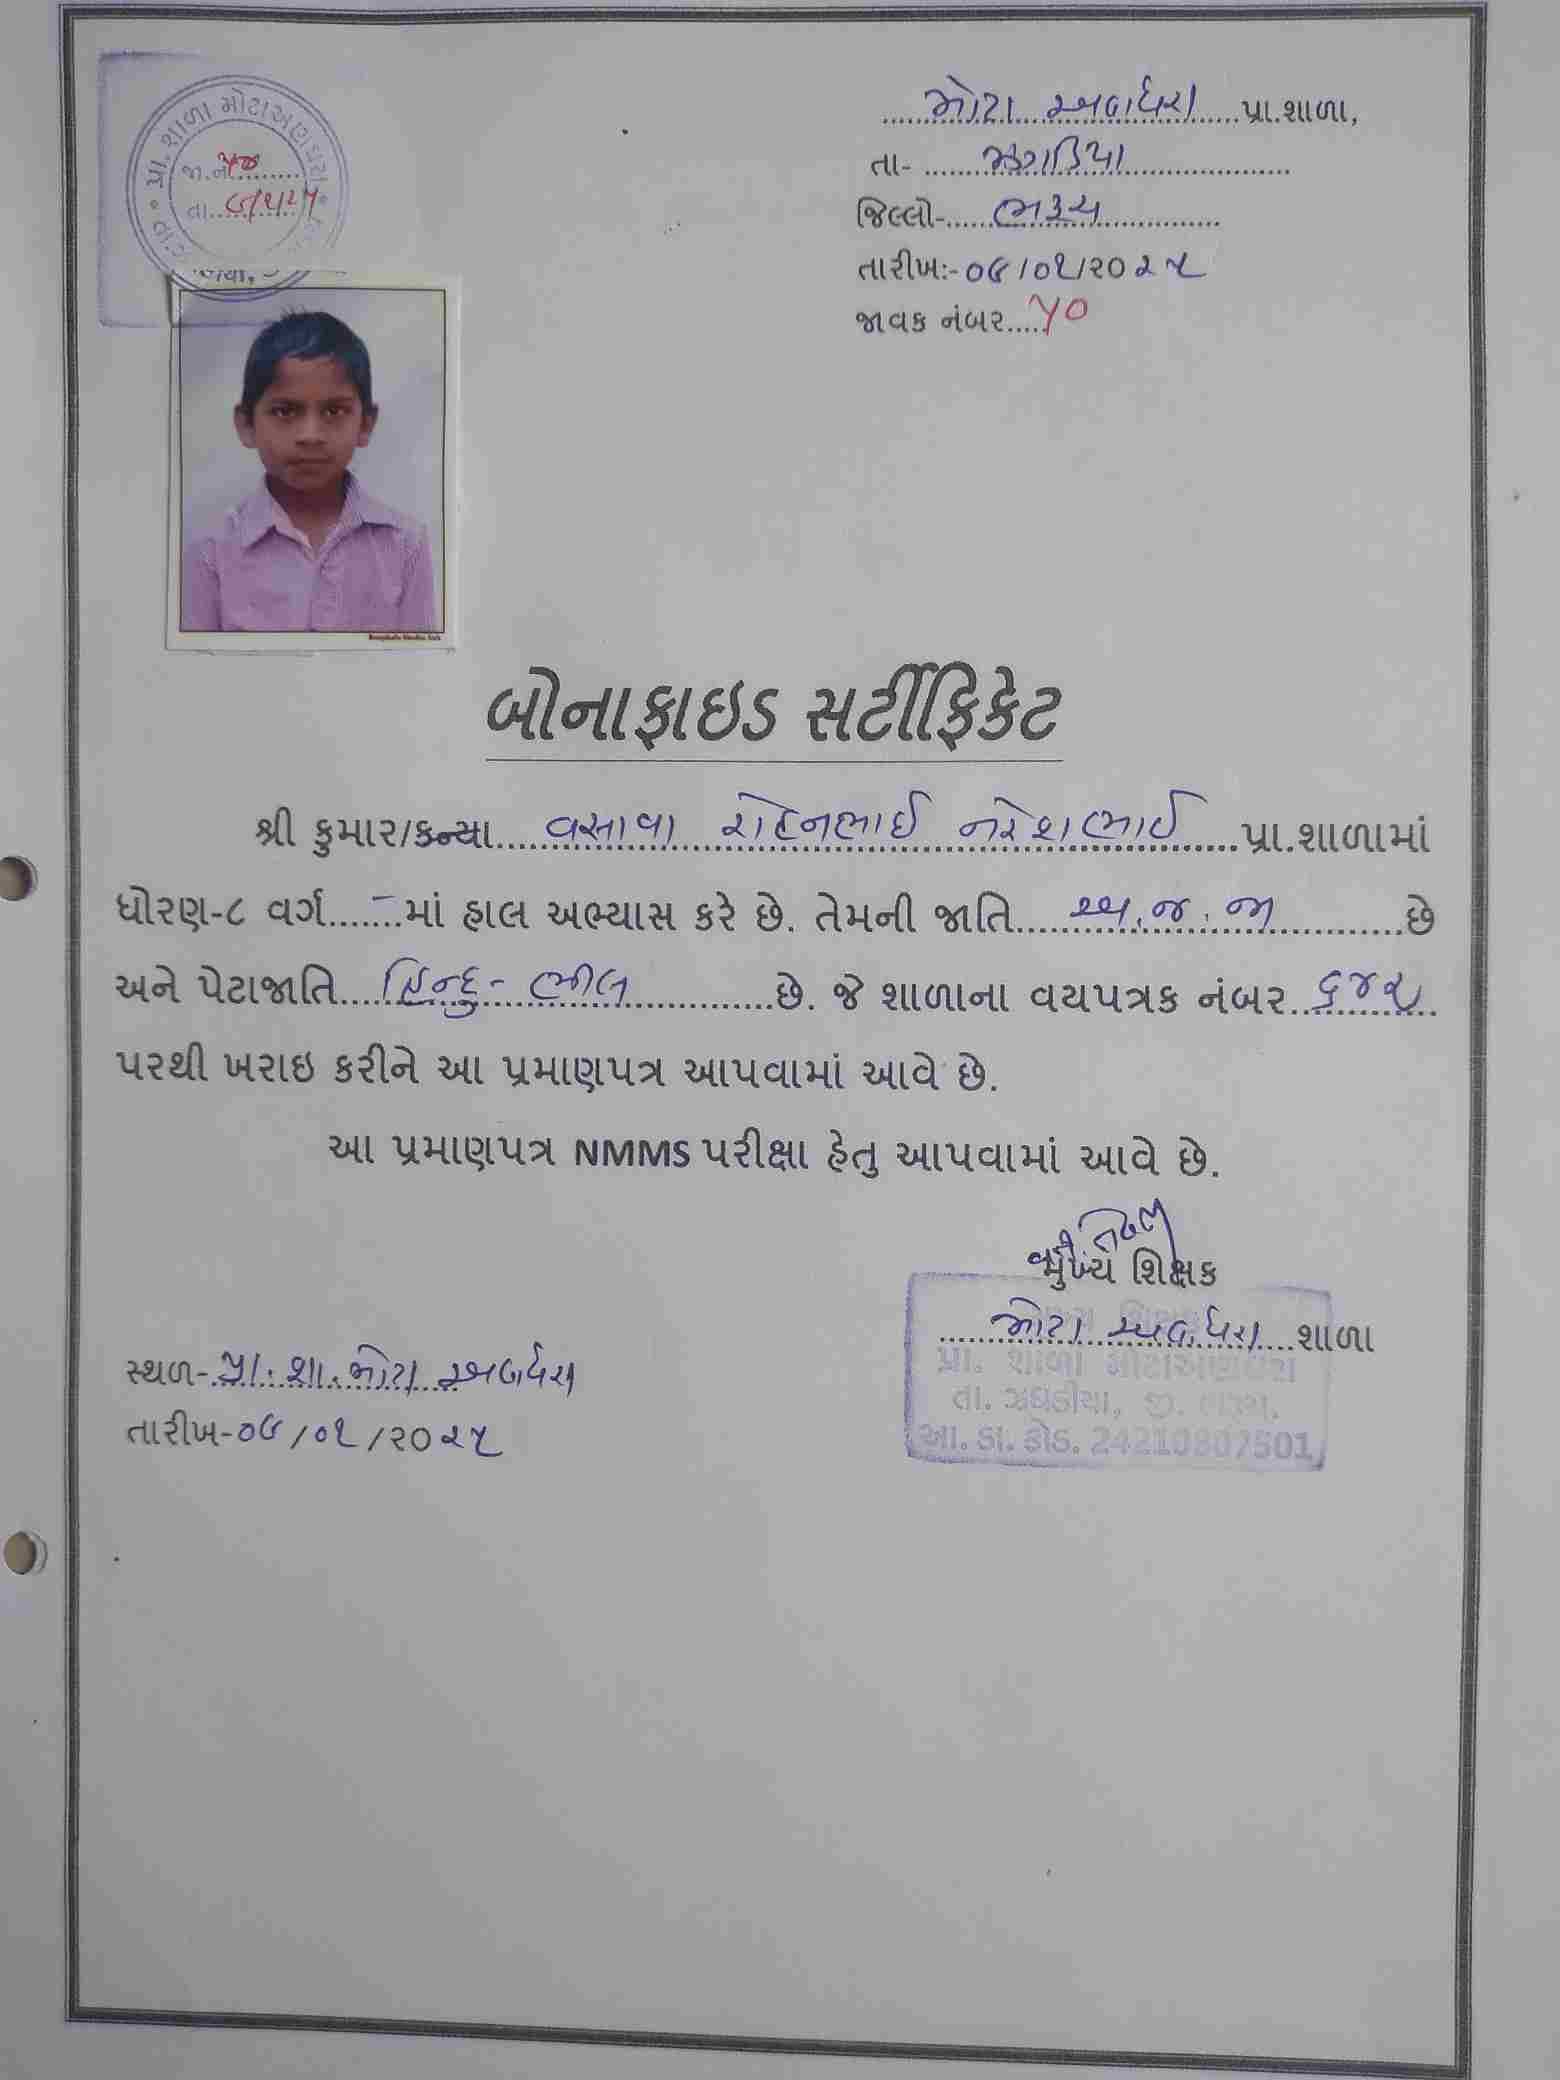 પ્રા. શાળા મોટાઅણધરા
જા.નં. ૫૦
તા. ૯/૧/૨૫
મોટા અણધરા પ્રા.શાળા,
તા- ઝગડિયા
જિલ્લો- ભરૂચ
તારીખ:- ૦૯/૦૧/૨૦૨૫
જાવક નંબર.... ૫૦
બોનાફાઇડ સર્ટીફિકેટ
શ્રી કુમાર/કન્યા... વસાવા રોહનભાઈ નરેશભાઈ ...પ્રા.શાળામાં
ધોરણ-૮ વર્ગ...–...માં હાલ અભ્યાસ કરે છે. તેમની જાતિ... અ.જ.જા ...છે
અને પેટાજાતિ... હિન્દુ - ભીલ ...છે. જે શાળાના વયપત્રક નંબર... ૬૪૨
પરથી ખરાઇ કરીને આ પ્રમાણપત્ર આપવામાં આવે છે.
આ પ્રમાણપત્ર NMMS પરીક્ષા હેતુ આપવામાં આવે છે.
મુખ્ય શિક્ષક
મોટા અણધરા શાળા
પ્રા. શાળા મોટાઅણધરા
તા. ઝઘડીયા, જી. ભરૂચ.
આ. ડા. કોડ. 24210807501
સ્થળ- પ્રા. શા. મોટા અણધરા
તારીખ- ૦૯/૦૧/૨૦૨૫